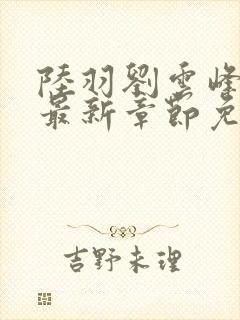 陸羽劉雲峰
最新章節免
吉野未理